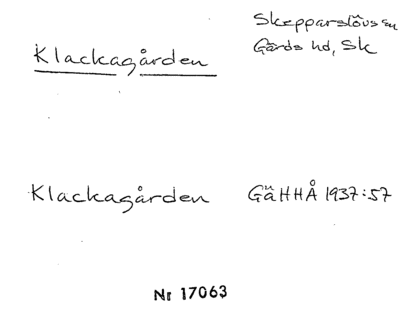 Skepparslövs sn
Klackagården
Gärds hd, Sk
Klackagården GäHHÅ 1937:57
Nr 17063